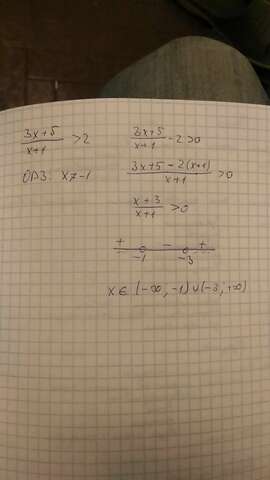 (3x+5)/(x+1) > 2
ОДЗ: x≠-1
(3x+5)/(x+1) - 2 > 0
(3x+5-2(x+1))/(x+1) > 0
(x+3)/(x+1) > 0
+ - +
-1 -3
x ∈ (-∞, -1) ∪ (-3; +∞)